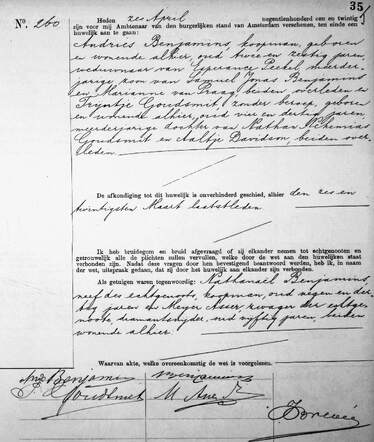 35
No. 260
Heden zes April negentienhonderd een en twintig
zijn voor mij Ambtenaar van den burgerlijken stand van Amsterdam verschenen, ten einde een
huwelijk aan te gaan:
Andries Benjamins, koopman, geboren
en wonende alhier, oud twee en zestig jaren,
weduwnaar van Esperance Peekel, meerder-
jarige zoon van Samuel Jonas Benjamins
en Marianne van Praag, beiden overleden en
Trijntje Goudsmit, zonder beroep, geboren
en wonende alhier, oud vier en dertig jaren,
meerderjarige dochter van Nathan Nehemias
Goudsmit en Aaltje Davidson, beiden over-
leden.
De afkondiging tot dit huwelijk is onverhinderd geschied, alhier den zes en
twintigsten Maart laatstleden.
Ik heb bruidegom en bruid afgevraagd of zij elkander nemen tot echtgenooten en
getrouwelijk alle de plichten zullen vervullen, welke door de wet aan den huwelijken staat
verbonden zijn. Nadat deze vragen door hen bevestigend beantwoord werden, heb ik, in naam
der wet, uitspraak gedaan, dat zij door het huwelijk aan elkander zijn verbonden.
Als getuigen waren tegenwoordig: Nathanaël Benjamins,
neef des echtgenoots, koopman, oud negen en der-
tig jaren en Meyer Asser, zwager der echtge-
noote, diamantslijper, oud vijftig jaren, beiden
wonende alhier.
Waarvan akte, welke overeenkomstig de wet is voorgelezen.
Benjamins
Goudsmit
M Asser